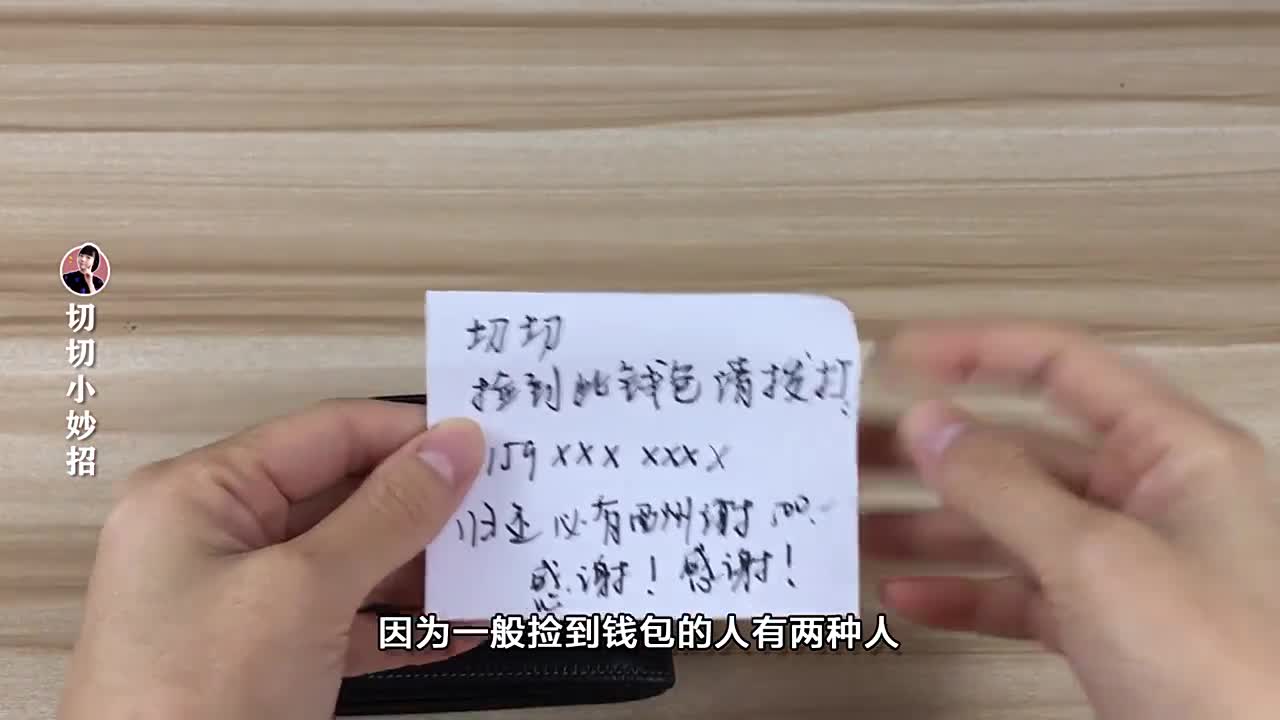 切切小妙招
切切
捡到此钱包请拨打
159 XXX XXXX
归还必有酬谢
感谢！感谢！
因为一般捡到钱包的人有两种人